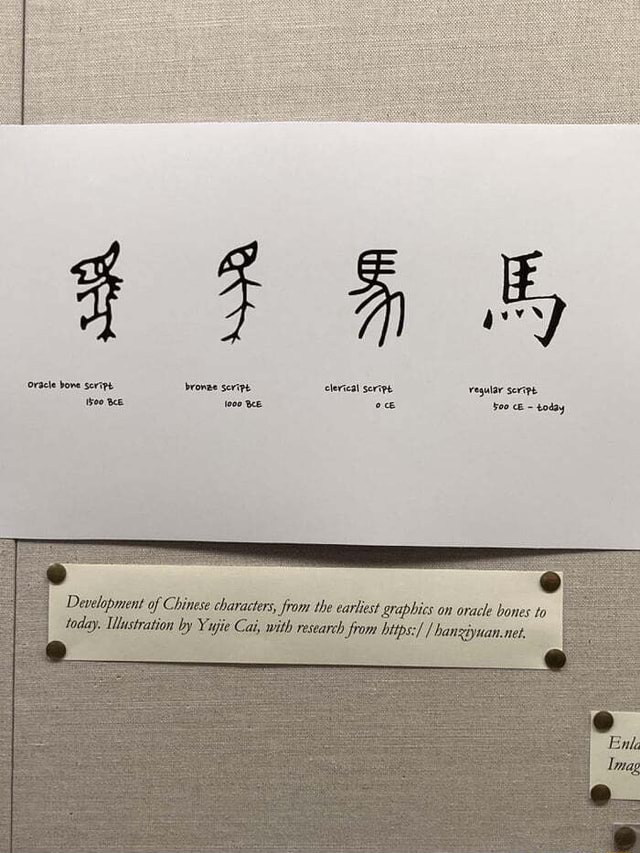 馬
oracle bone script
1500 BCE
bronze script
1000 BCE
clerical script
0 CE
regular script
500 CE - today
Development of Chinese characters, from the earliest graphics on oracle bones to
today. Illustration by Yujie Cai, with research from https://hanziyuan.net.